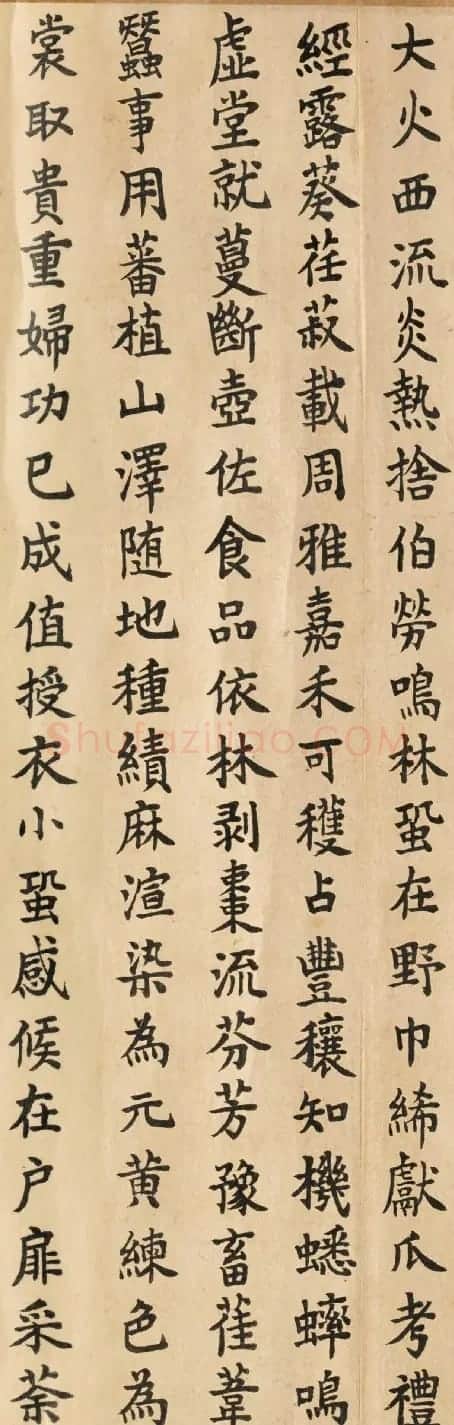 大火西流炎熱捨伯勞鳴林蛩在野巾絺獻瓜考禮
經露葵荏菽載周雅嘉禾可穫占豐穰知機蟋蟀鳴
虛堂就蔓斷壺佐食品依林剥棗流芬芳豫畜萑葦
蠶事用蕃植山澤随地種績麻渲染為元黄練色為
裳取貴重婦功已成值授衣小蛩感候在户扉采荼
Shufaziliao.COM